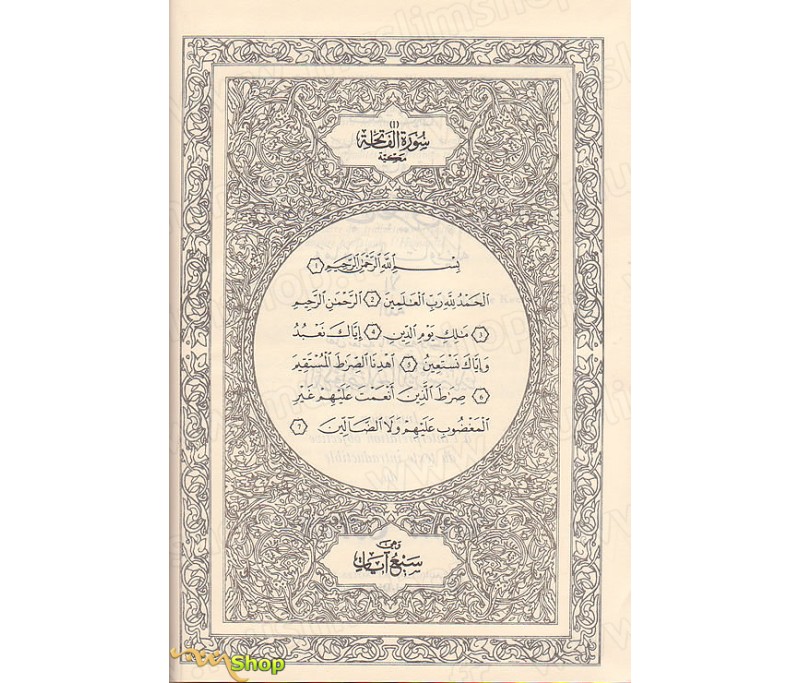 (١)
سُورَةُ الفَاتِحَةِ
مَكِّيَّة
بِسْمِ اللَّهِ الرَّحْمَٰنِ الرَّحِيمِ ١
الْحَمْدُ لِلَّهِ رَبِّ الْعَالَمِينَ ٢ الرَّحْمَٰنِ الرَّحِيمِ
٣ مَالِكِ يَوْمِ الدِّينِ ٤ إِيَّاكَ نَعْبُدُ
وَإِيَّاكَ نَسْتَعِينُ ٥ اهْدِنَا الصِّرَاطَ الْمُسْتَقِيمَ
٦ صِرَاطَ الَّذِينَ أَنْعَمْتَ عَلَيْهِمْ غَيْرِ
الْمَغْضُوبِ عَلَيْهِمْ وَلَا الضَّالِّينَ ٧
وَهِيَ
سَبْعُ آيَاتٍ
Shop